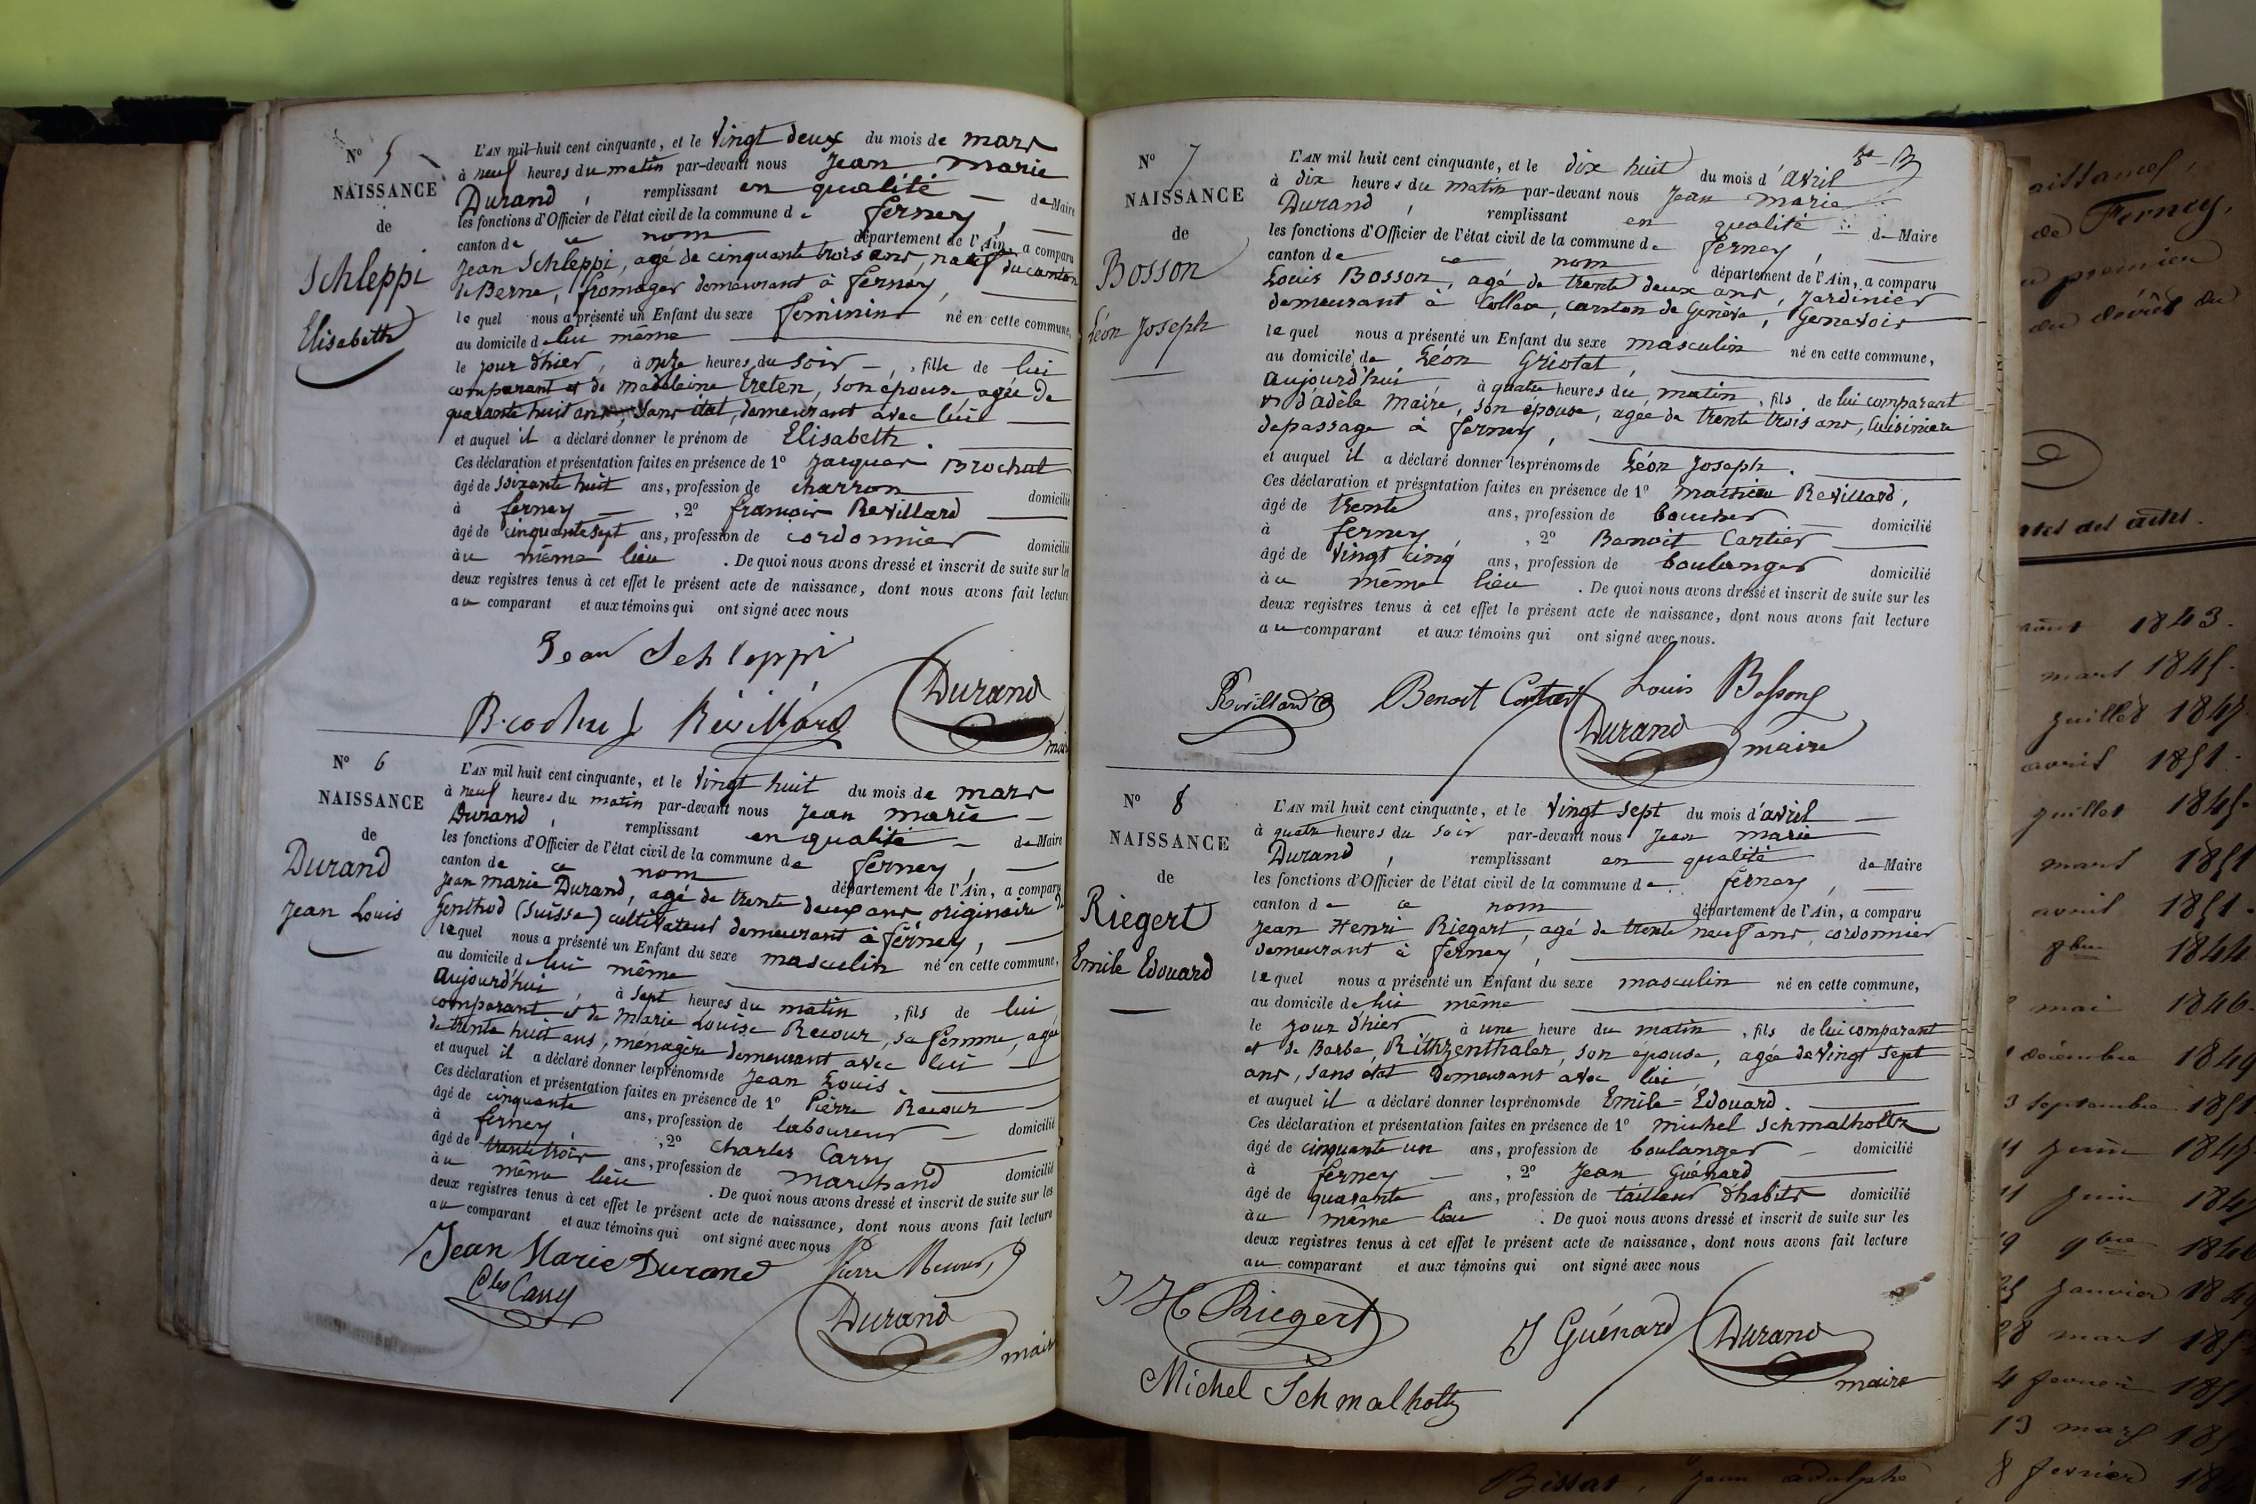 N° 5
NAISSANCE
de
Schleppi
Elisabeth
L'AN mil huit cent cinquante, et le Vingt deux du mois de mars
à neuf heures du matin par-devant nous Jean Marie
Durand, remplissant en qualité de Maire
les fonctions d'Officier de l'état civil de la commune de ferney,
canton de ce nom département de l'Ain, a comparu
Jean Schleppi, agé de cinquante trois ans, natif du canton
de Berne, fromager demeurant à ferney,
lequel nous a présenté un Enfant du sexe féminin né en cette commune,
au domicile de lui même
le jour d'hier, à onze heures du soir, fille de lui
comparant et de Madeleine Treten, son épouse, agée de
quarante huit ans, sans état, demeurant avec lui
et auquel il a déclaré donner le prénom de Elisabeth.
Ces déclaration et présentation faites en présence de 1° Jacques Brochut
âgé de soixante huit ans, profession de charron domicilié
à ferney, 2° françois Revillard
âgé de cinquante sept ans, profession de cordonnier domicilié
au même lieu. De quoi nous avons dressé et inscrit de suite sur les
deux registres tenus à cet effet le présent acte de naissance, dont nous avons fait lecture
au comparant et aux témoins qui ont signé avec nous
Jean Schleppi
Brochut Révillard Durand
maire
N° 6
NAISSANCE
de
Durand
Jean Louis
L'AN mil huit cent cinquante, et le Vingt huit du mois de mars
à neuf heures du matin par-devant nous Jean Marie
Durand, remplissant en qualité de Maire
les fonctions d'Officier de l'état civil de la commune de ferney,
canton de ce nom département de l'Ain, a comparu
Jean marie Durand, agé de trente deux ans originaire de
Genthod (Suisse) cultivateur demeurant à ferney,
lequel nous a présenté un Enfant du sexe masculin né en cette commune,
au domicile de lui même
aujourd'hui, à sept heures du matin, fils de lui
comparant et de Marie Louise Recour, sa femme, agée
de trente huit ans, ménagère demeurant avec lui
et auquel il a déclaré donner les prénoms de Jean Louis.
Ces déclaration et présentation faites en présence de 1° Pierre Recour
âgé de cinquante ans, profession de laboureur domicilié
à ferney, 2° Charles Carry
âgé de trente trois ans, profession de marchand domicilié
au même lieu. De quoi nous avons dressé et inscrit de suite sur les
deux registres tenus à cet effet le présent acte de naissance, dont nous avons fait lecture
au comparant et aux témoins qui ont signé avec nous
Jean Marie Durand Pierre
Ches Carry
Durand
maire
N° 7
NAISSANCE
de
Bosson
Léon Joseph
L'AN mil huit cent cinquante, et le dix huit du mois d'avril
à dix heures du matin par-devant nous Jean Marie
Durand, remplissant en qualité de Maire
les fonctions d'Officier de l'état civil de la commune de ferney,
canton de ce nom département de l'Ain, a comparu
Louis Bosson, agé de trente deux ans, Jardinier
demeurant à Collex, canton de Genève, Genevois
lequel nous a présenté un Enfant du sexe masculin né en cette commune,
au domicile de Léon Griotat,
aujourd'hui à quatre heures du matin, fils de lui comparant
et d'adèle Maire, son épouse, agée de trente trois ans, Cuisinière
de passage à ferney,
et auquel il a déclaré donner les prénoms de Léon Joseph.
Ces déclaration et présentation faites en présence de 1° Mathieu Revillard,
âgé de trente ans, profession de boucher domicilié
à ferney, 2° Benoit Cartier
âgé de vingt cinq ans, profession de boulanger domicilié
au même lieu. De quoi nous avons dressé et inscrit de suite sur les
deux registres tenus à cet effet le présent acte de naissance, dont nous avons fait lecture
au comparant et aux témoins qui ont signé avec nous.
Révillard Benoit Cartier Louis Bossong
Durand
maire
N° 8
NAISSANCE
de
Riegert
Emile Edouard
L'AN mil huit cent cinquante, et le Vingt sept du mois d'avril
à quatre heures du soir par-devant nous Jean marie
Durand, remplissant en qualité de Maire
les fonctions d'Officier de l'état civil de la commune de ferney,
canton de ce nom département de l'Ain, a comparu
Jean Henri Riegert, agé de trente neuf ans, cordonnier
demeurant à ferney,
lequel nous a présenté un Enfant du sexe masculin né en cette commune,
au domicile de lui même
le jour d'hier à une heure du matin, fils de lui comparant
et de Barbe, Rithzenthaler, son épouse, agée de vingt sept
ans, sans état demeurant avec lui,
et auquel il a déclaré donner les prénoms de Emile=Edouard.
Ces déclaration et présentation faites en présence de 1° Michel Schmalholtz
âgé de cinquante un ans, profession de boulanger domicilié
à ferney, 2° Jean Guénard
âgé de quarante ans, profession de tailleur d'habits domicilié
au même lieu. De quoi nous avons dressé et inscrit de suite sur les
deux registres tenus à cet effet le présent acte de naissance, dont nous avons fait lecture
au comparant et aux témoins qui ont signé avec nous
J H Riegert
J Guénard Durand
maire
Michel Schmalholtz
de Ferney,
août 1843.
mars 1845.
juillet 1847.
avril 1851.
juillet 1845.
mars 1851
avril 1851.
8bre 1844
mai 1846.
décembre 1849
3 septembre 1851.
juin
juin
9bre 1846
janvier
28 mars
4 fevrier
13 mars
Bissat, Jean adolphe 8 fevrier